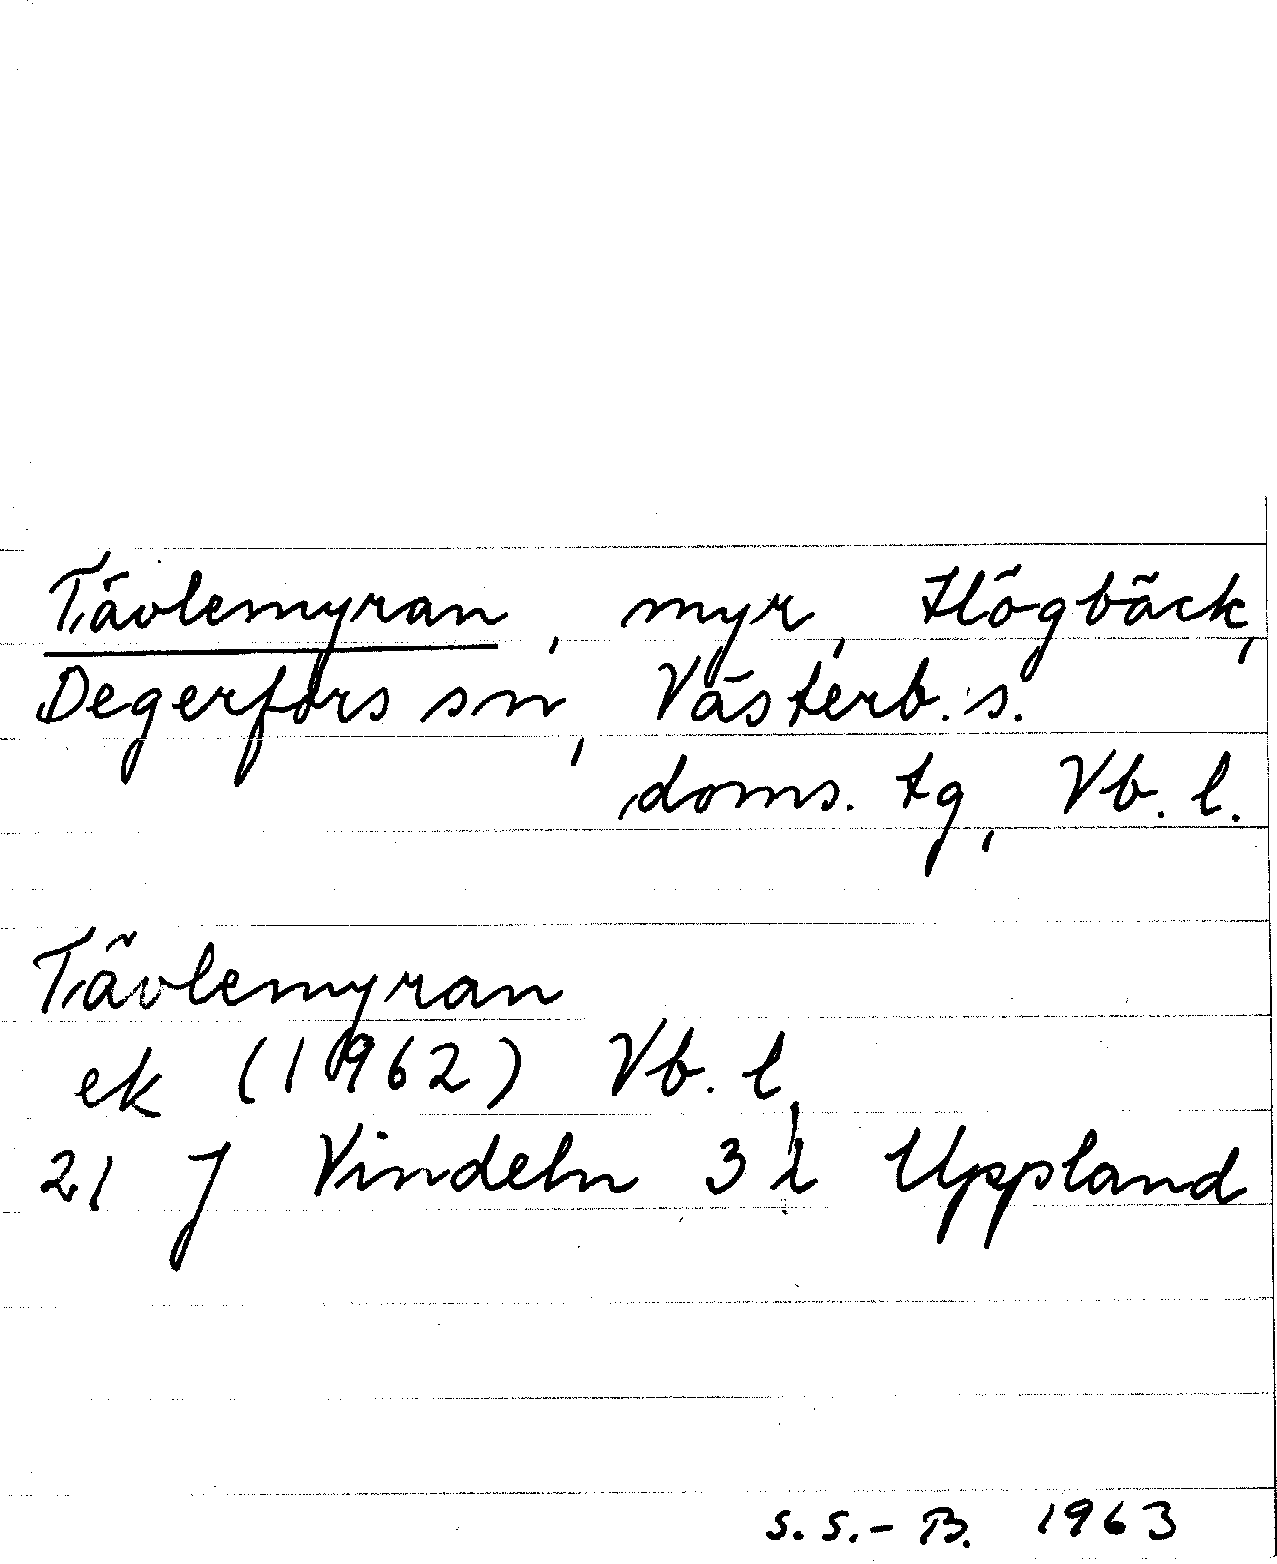 Tävlemyran, myr, Högbäck,
Degerfors sn, Västerb. s.
doms. tg, Vb. l.
Tävlemyran
ek (1962) Vb. l,
21 J Vindeln 3 i Uppland
S. S.-B. 1963